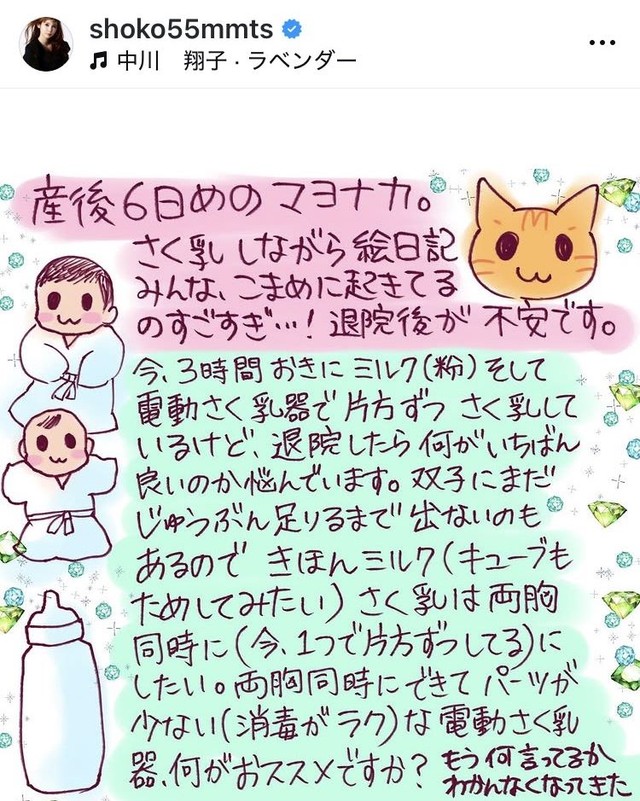 shoko55mmts
中川　翔子・ラベンダー
産後6日めのマヨナカ。
さく乳しながら絵日記
みんな、こまめに起きてる
のすごすぎ…！退院後が不安です。
今、3時間おきにミルク(粉)そして
電動さく乳器で片方ずつさく乳して
いるけど、退院したら何がいちばん
良いのか悩んでいます。双子にまだ
じゅうぶん足りるまで出ないのも
あるので きほんミルク(キューブも
ためしてみたい)さく乳は両胸
同時に(今、1つで片方ずつしてる)に
したい。両胸同時にできてパーツが
少ない(消毒がラク)な電動さく乳
器、何がおススメですか？
もう何言ってるか
わかんなくなってきた